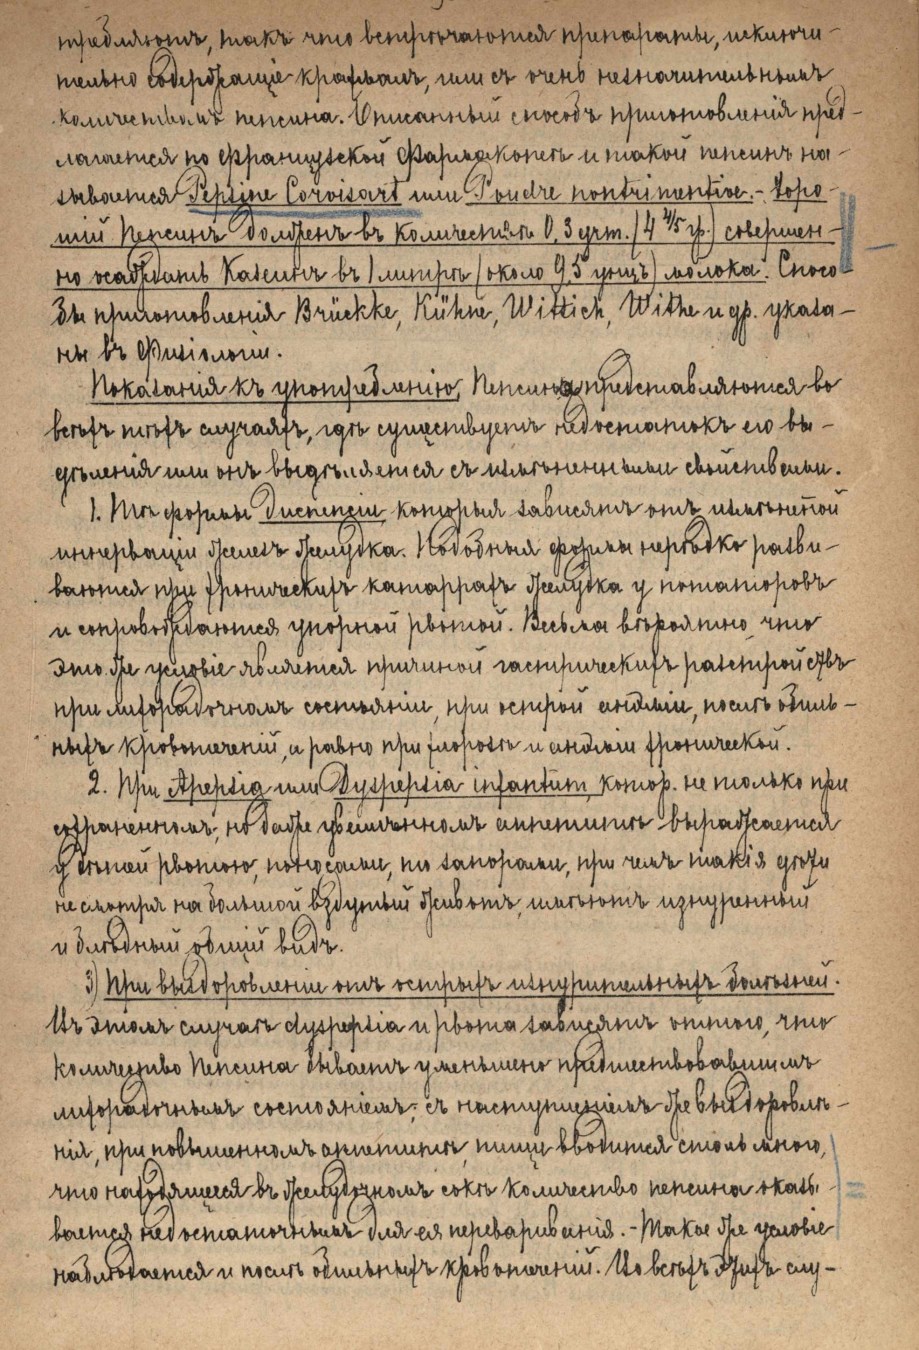 требляютъ, такъ что встрѣчаются препараты, исключи-
тельно содержащіе крахмалъ, или съ очень незначительнымъ
количествомъ пепсина. Описанный способъ приготовленія пред-
лагается по Французской Фармакопеѣ и такой пепсинъ на-
зывается Pepsine Corvisart или Poudre nontrimentive. - Хоро-
шій Пепсинъ долженъ въ количествѣ 0,3 грт. (4 4/5 гр.) совершен-
но осадить Казеинъ въ 1 литрѣ (около 9,5 унцъ) молока. Спосо-
бы приготовленія Brückke, Kühne, Wittich, Withe и др. указа-
ны въ Физіологіи.
Показанія къ употребленію Пепсина представляются во
всѣхъ тѣхъ случаяхъ, гдѣ существуетъ недостатокъ его вы-
дѣленія или онъ выдѣляется съ измѣненными свойствами.
1. Тѣ формы диспепсіи, которыя зависятъ отъ измѣненной
иннерваціи железъ желудка. Подобныя формы нерѣдко разви-
ваются при хроническихъ катаррахъ желудка у потаторовъ
и сопровождаются упорной рвотой. Весьма вѣроятно, что
это же условіе является причиной гастрическихъ разстройствъ
при лихорадочномъ состояніи, при острой анэміи, послѣ обиль-
ныхъ кровотеченій, а равно при хлорозѣ и анэміи хронической.
2. При Apepsia или Dyspepsia infantum, котор. не только при
сохраненномъ, но даже увеличенномъ аппетитѣ выражается
у дѣтей рвотою, поносами, то запорами, при чемъ такія дѣти
не смотря на большой вздутый животъ, имѣютъ изнуренный
и блѣдный общій видъ.
3) При выздоровленіи отъ острыхъ изнурительныхъ болѣзней.
Въ этомъ случаѣ dyspepsia и рвота зависятъ оттого, что
количество Пепсина бываетъ уменьшено предшествовавшимъ
лихорадочнымъ состояніемъ; съ наступленіемъ же выздоровлѣ-
нія, при повышенномъ аппетитѣ, пищи вводится столь много,
что находящееся въ желудочномъ сокѣ количество пепсина оказы-
вается недостаточнымъ для ея перевариванія. - Такое же условіе
наблюдается и послѣ обильныхъ кровотеченій. Во всѣхъ этихъ слу-